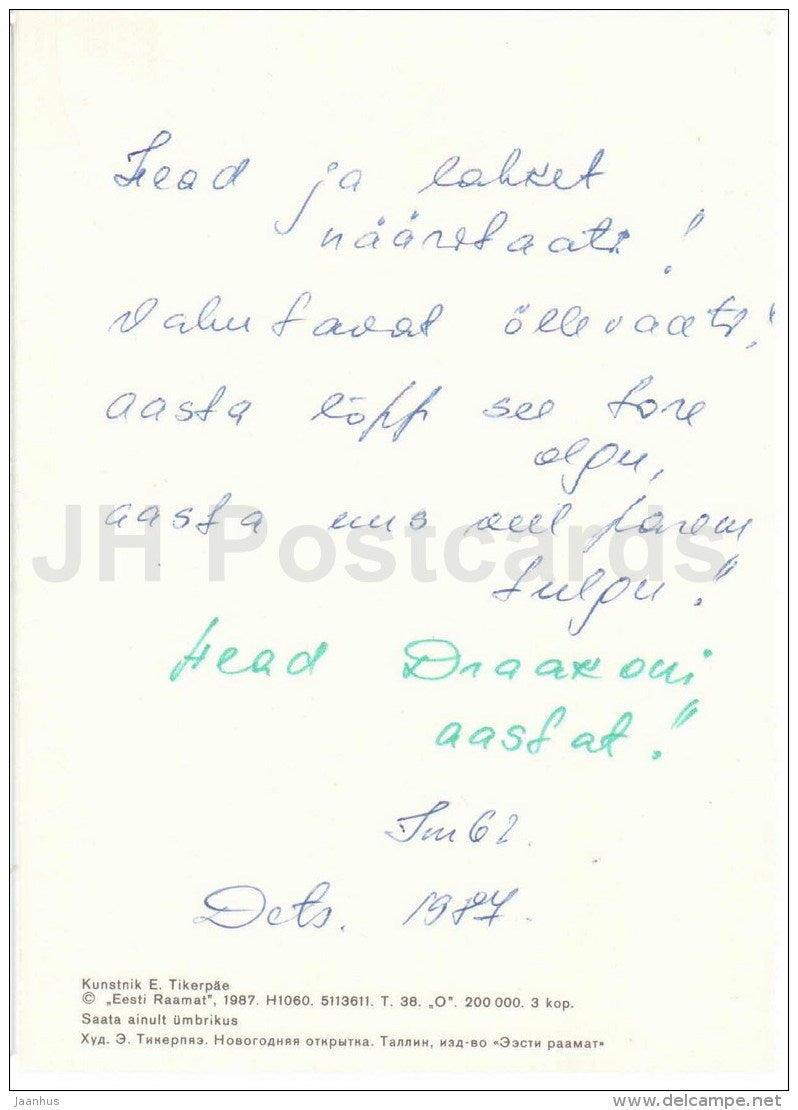 Head ja lahket
nääritaati!
Vahutavat õllevaati!
aasta lõpp see tore
olgu,
aasta uus veel parem
tulgu!
Head Draakoni
aastat!
Dets. 1987.
JH Postcards
Kunstnik E. Tikerpäe
© „Eesti Raamat", 1987. H1060. 5113611. T. 38. „O". 200 000. 3 kop.
Saata ainult ümbrikus
Худ. Э. Тикерпяэ. Новогодняя открытка. Таллин, изд-во «Ээсти раамат»
Jaanhus
delcampe.net